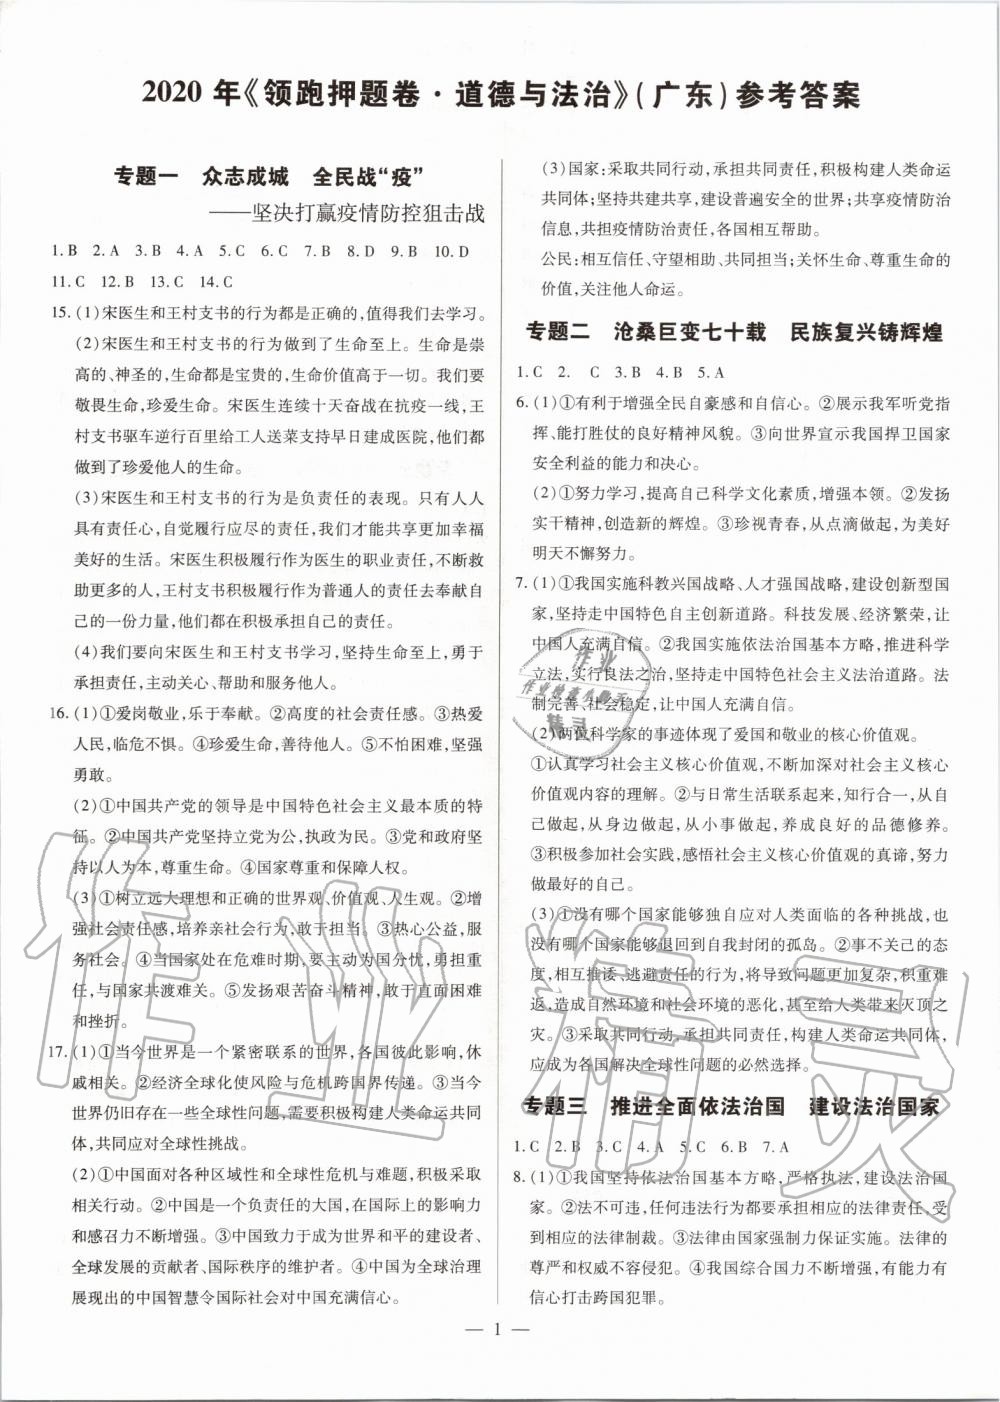 2020 年《领跑押题卷·道德与法治》(广东)参考答案
专题一 众志成城 全民战“疫”
——坚决打赢疫情防控狙击战
1. B 2. A 3. B 4. A 5. C 6. C 7. B 8. D 9. B 10. D
11. C 12. B 13. C 14. C
15. (1)宋医生和王村支书的行为都是正确的,值得我们去学习。
(2)宋医生和王村支书的行为做到了生命至上。生命是崇
高的、神圣的,生命都是宝贵的,生命价值高于一切。我们要
敬畏生命,珍爱生命。宋医生连续十天奋战在抗疫一线,王
村支书驱车逆行百里给工人送菜支持早日建成医院,他们都
做到了珍爱他人的生命。
(3)宋医生和王村支书的行为是负责任的表现。只有人人
具有责任心,自觉履行应尽的责任,我们才能共享更加幸福
美好的生活。宋医生积极履行作为医生的职业责任,不断救
助患者,王村支书积极履行作为普通人的责任去奉献自己
己的一份力量,他们都在积极承担自己的责任。
(4)我们要向宋医生和王村支书学习,坚持生命至上,勇于
承担责任,主动关心、帮助和服务他人。
16. (1)①爱岗敬业,乐于奉献。②高度的社会责任感。③热爱
人民,临危不惧。④珍爱生命,善待他人。⑤不怕困难,坚强
勇敢。
(2)①中国共产党的领导是中国特色社会主义最本质的特
征。②中国共产党坚持立党为公,执政为民。③党和政府坚
持以人为本,尊重生命。④国家尊重和保障人权。
(3)①树立远大理想和正确的世界观、价值观、人生观。②增
强社会责任感,培养亲社会行为,敢于担当。③热心公益,服
务社会。④当国家处在危难时期,要主动为国分忧,勇担重
任,与国家共渡难关。⑤发扬艰苦奋斗精神,敢于直面困难
和挫折。
17. (1)①当今世界是一个紧密联系的世界,各国彼此影响,休
戚相关。②经济全球化使风险与危机跨国界传递。③当今
世界仍旧存在一些全球性问题,需要积极构建人类命运共同
体,共同应对全球性挑战。
(2)①中国面对各种区域性和全球性危机与难题,积极采取
相关行动。②中国是一个负责任的大国,在国际上的影响力
和感召力不断增强。③中国致力于成为世界和平的建设者、
全球发展的贡献者、国际秩序的维护者。④中国为全球治理
展现出的中国智慧令国际社会对中国充满信心。
(3)国家:采取共同行动,承担共同责任,积极构建人类命运
共同体;坚持共建共享,建设普遍安全的世界;共享疫情防治
信息,共担疫情防治责任,各国相互帮助。
公民:相互信任、守望相助、共同担当;关怀生命、尊重生命的
价值,关注他人命运。
专题二 沧桑巨变七十载 民族复兴铸辉煌
1. C 2. C 3. B 4. B 5. A
6. (1)①有利于增强全民自豪感和自信心。②展示我军听党指
挥、能打胜仗的良好精神风貌。③向世界宣示我国捍卫国家
安全利益的能力和决心。
(2)①努力学习,提高自己科学文化素质,增强本领。②发扬
实干精神,创造新的辉煌。③珍视青春,从点滴做起,为美好
明天不懈努力。
7. (1)①我国实施科教兴国战略、人才强国战略,建设创新型国
家,坚持走中国特色自主创新道路。科技发展、经济繁荣,让
中国人充满自信。②我国实施依法治国基本方略,推进科学
立法,实行良法之治,坚持走中国特色社会主义法治道路。法
制完善、社会稳定,让中国人充满自信。
(2)两位科学家的事迹体现了爱国和敬业的核心价值观。
①认真学习社会主义核心价值观,不断加深对社会主义核心
价值观内容的理解。②与日常生活联系起来,知行合一,从自
己做起,从身边做起,从小事做起,养成良好的品德修养。
③积极参加社会实践,感悟社会主义核心价值观的真谛,努力
做最好的自己。
(3)①没有哪个国家能够独自应对人类面临的各种挑战,也
没有哪个国家能够退回到自我封闭的孤岛。②事不关己的态
度,相互推诿、逃避责任的行为,将导致问题更加复杂,积重难
返,造成自然环境和社会环境的恶化,甚至给人类带来灭顶之
灾。③采取共同行动,承担共同责任,构建人类命运共同体,
应成为各国解决全球性问题的必然选择。
专题三 推进全面依法治国 建设法治国家
1. C 2. B 3. A 4. A 5. C 6. B 7. A
8. (1)①我国坚持依法治国基本方略,严格执法,建设法治国
家。②法不可违,任何违法行为都要承担相应的法律责任,受
到相应的法律制裁。③法律由国家强制力保证实施。法律的
尊严和权威不容侵犯。④我国综合国力不断增强,有能力有
信心打击跨国犯罪。
— 1 —
作业
精灵
作业精灵